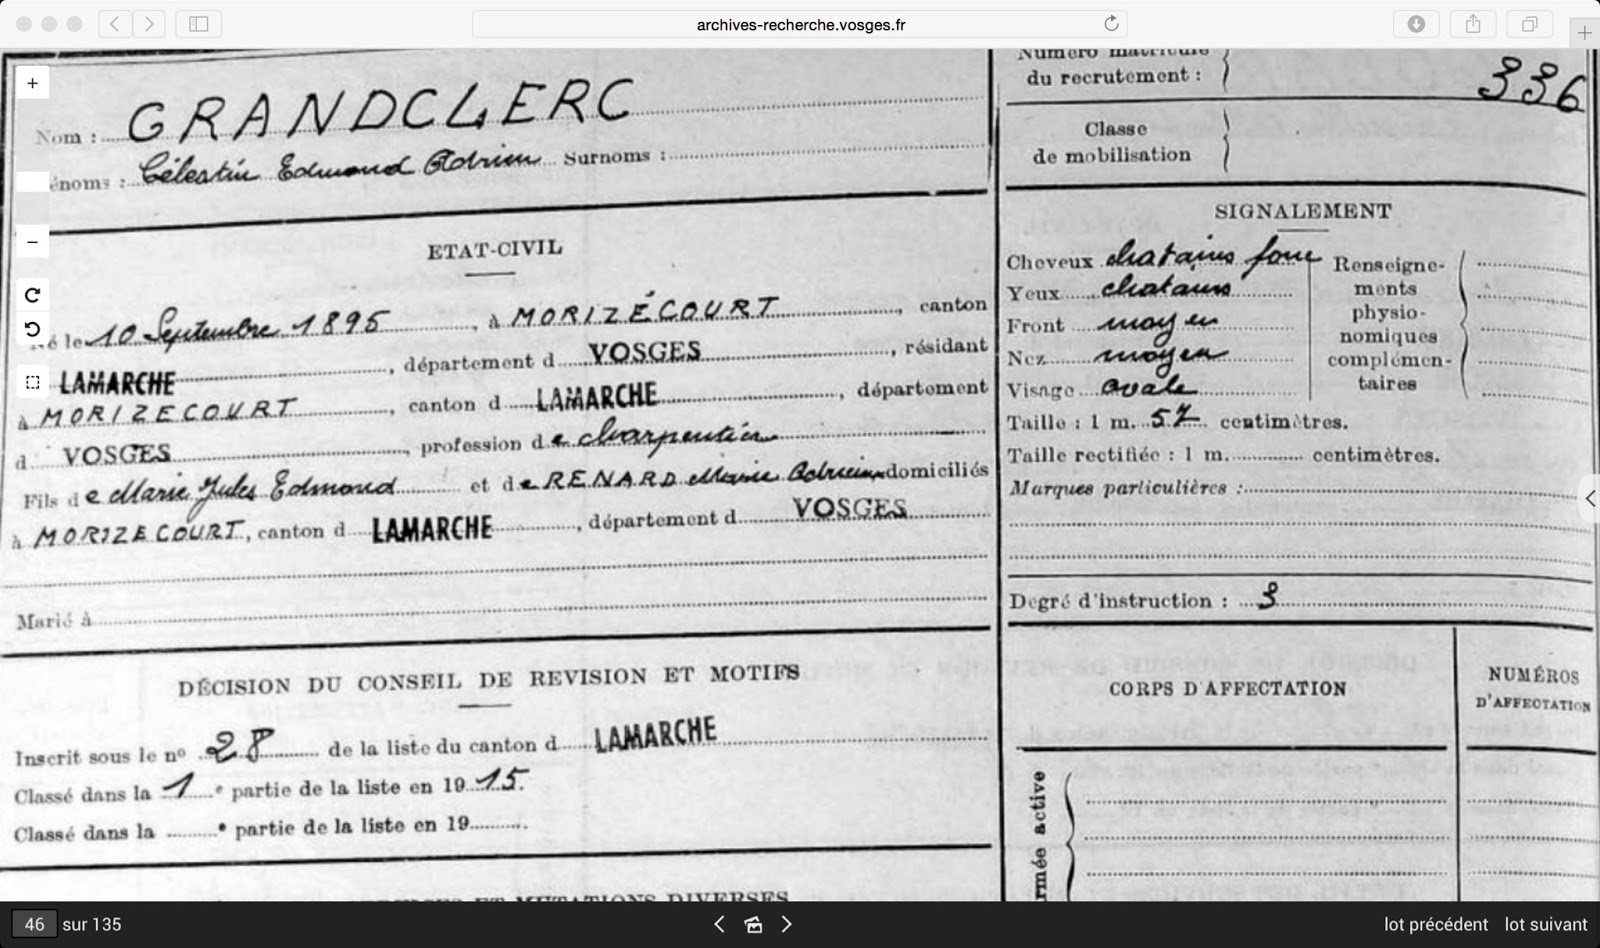 archives-recherche.vosges.fr
Nom : GRANDCLERC
énoms : Célestin Edmond Adrien Surnoms :
ETAT-CIVIL
Né le 10 Septembre 1895, à MORIZÉCOURT, canton
LAMARCHE, département d VOSGES, résidant
à MORIZECOURT, canton d LAMARCHE, département
d VOSGES, profession de charpentier
Fils de Marie Jules Edmond et de RENARD Marie Adrienne domiciliés
à MORIZECOURT, canton d LAMARCHE, département d VOSGES
Marié à
DÉCISION DU CONSEIL DE REVISION ET MOTIFS
Inscrit sous le nº 28 de la liste du canton d LAMARCHE
Classé dans la 1e partie de la liste en 1915.
Classé dans la e partie de la liste en 19
ET MUTATIONS DIVERSES
Numéro matricule
du recrutement : 336
Classe
de mobilisation
SIGNALEMENT
Cheveux chatains fonc
Yeux chatains
Front moyen
Nez moyen
Visage ovale
Renseigne-
ments
physio-
nomiques
complémen-
taires
Taille : 1 m. 57 centimètres.
Taille rectifiée : 1 m. centimètres.
Marques particulières :
Degré d'instruction : 3
CORPS D'AFFECTATION
NUMÉROS
D'AFFECTATION
rmée active
46 sur 135
lot précédent lot suivant